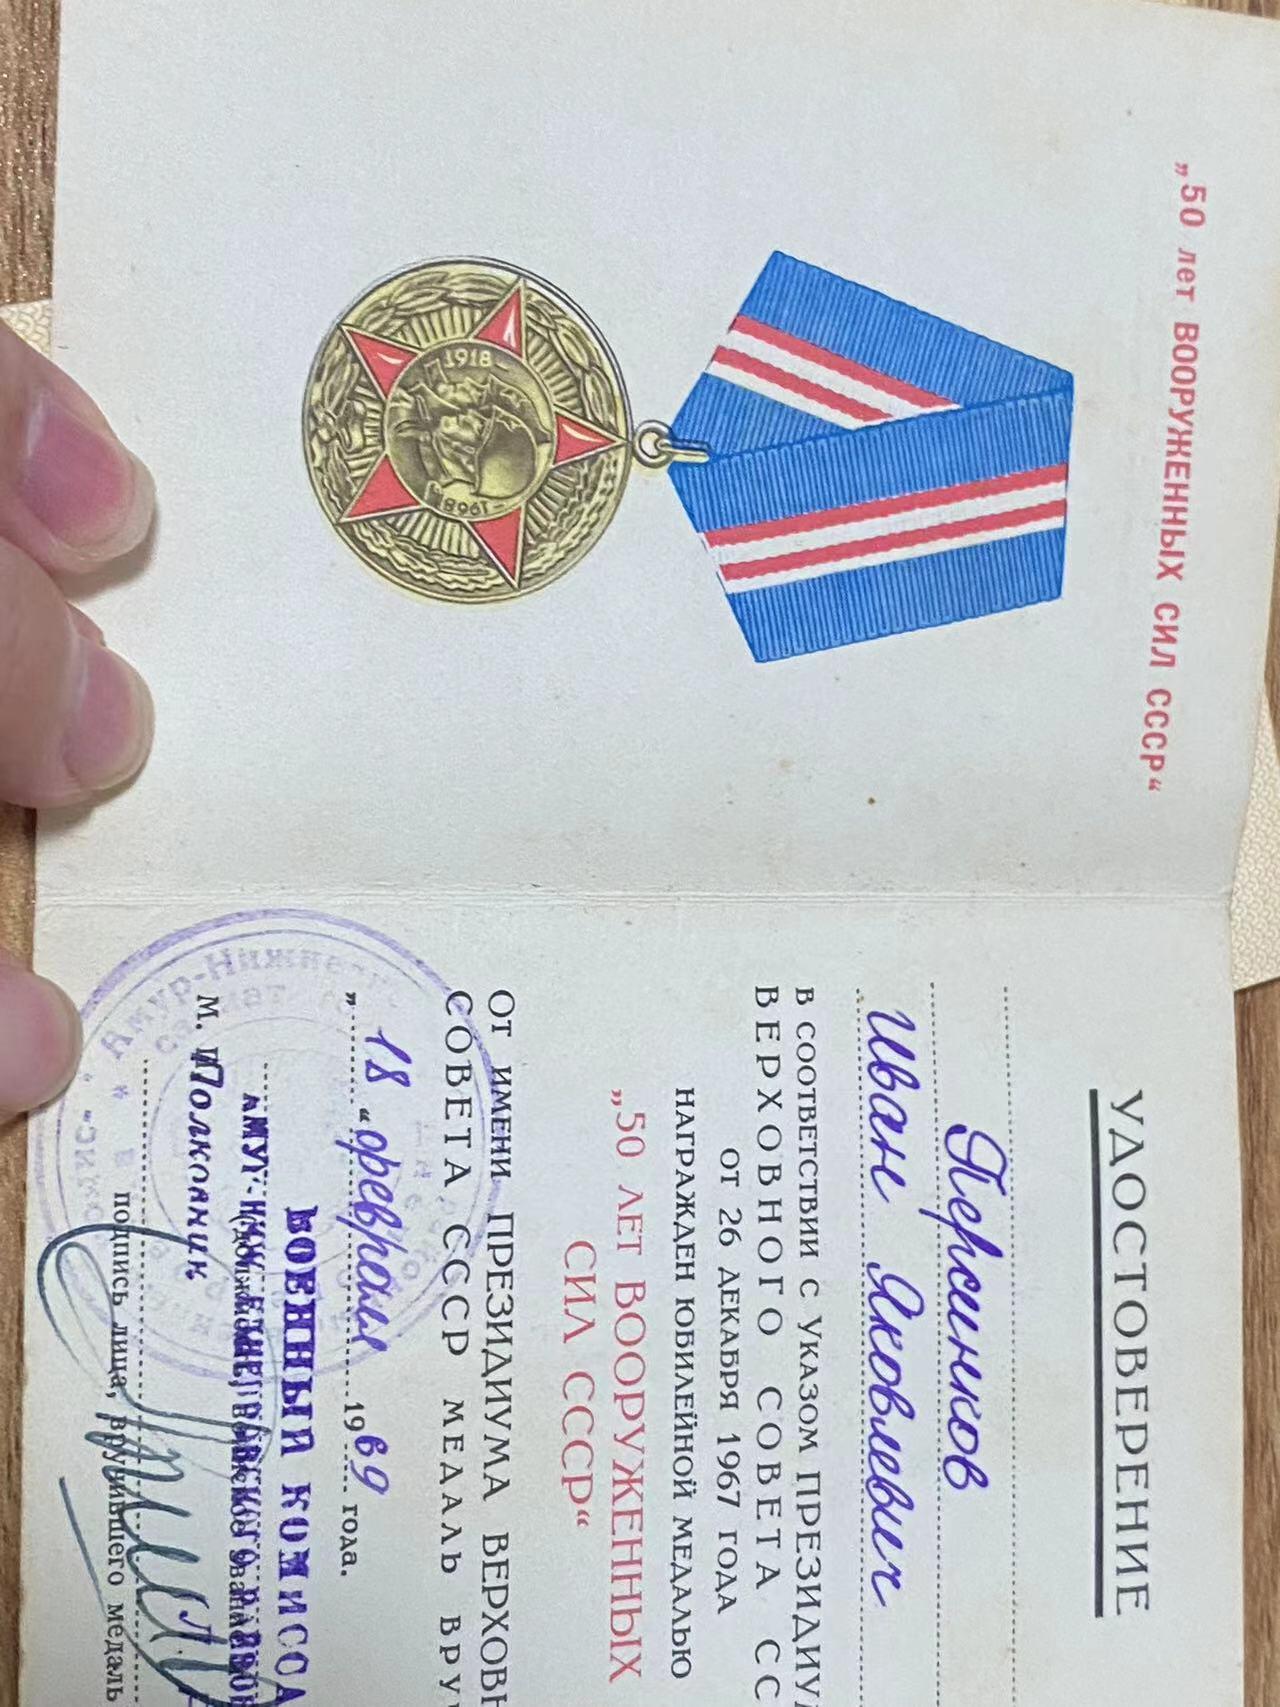 „50 лет ВООРУЖЕННЫХ СИЛ СССР“
1918-
-1968
УДОСТОВЕРЕНИЕ
Персинков
Иван Яковлевич
В СООТВЕТСТВИИ С УКАЗОМ ПРЕЗИДИУ
ВЕРХОВНОГО СОВЕТА СС
ОТ 26 ДЕКАБРЯ 1967 ГОДА
НАГРАЖДЕН ЮБИЛЕЙНОЙ МЕДАЛЬЮ
„50 ЛЕТ ВООРУЖЕННЫХ
СИЛ СССР“
От ИМЕНИ ПРЕЗИДИУМА ВЕРХОВН
СОВЕТА СССР МЕДАЛЬ ВРУ
„18“ февраля 1969 года.
ВОЕННЫЙ КОМИССА
М. П.
Полковник
подпись лица, вручившего медаль